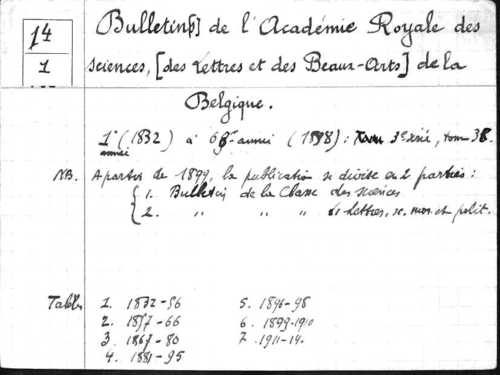 14
1
Bulletin[s] de l'Académie Royale des
Sciences, [des Lettres et des Beaux-Arts] de la
Belgique.
1e (1832) à 68e année (1898) : 3e série, tom 38.
année
NB. A partir de 1899, la publication se divise en 2 parties :
1. Bulletin de la Classe des sciences
2. " " " des Lettres, sc. mor. et polit.
Tables 1. 1832-56 5. 1896-98
2. 1857-66 6. 1899-1910
3. 1867-80 7. 1911-14.
4. 1881-95